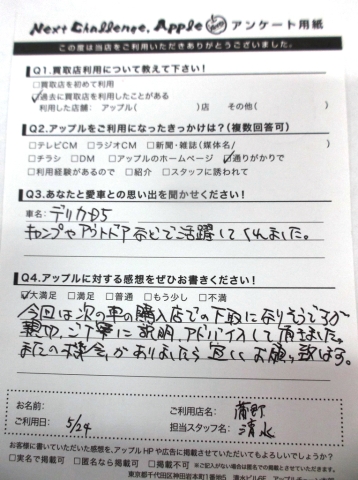 Next Challenge, Apple アンケート用紙
この度は当店をご利用いただきありがとうございました。
Q1.買取店利用について教えて下さい!
□買取店を初めて利用
☑過去に買取店を利用したことがある
利用した店舗: アップル( )店 その他( )
Q2.アップルをご利用になったきっかけは?(複数回答可)
□テレビCM □ラジオCM □新聞・雑誌(媒体名/ )
□チラシ □DM □アップルのホームページ ☑通りがかりで
□利用経験があるので □紹介 □スタッフに誘われて
Q3.あなたと愛車との思い出を聞かせください!
車名: デリカD5
キャンプやアウトドアなどで活躍してくれました。
Q4.アップルに対する感想をぜひお書きください!
☑大満足 □満足 □普通 □もう少し □不満
今回は次の車の購入店での下取になりそうですが
親切、ご丁寧に説明、アドバイスして頂きました。
またの機会がありましたら宜しくお願い致します。
お名前:
ご利用店名: 蒲郡
ご利用日: 5/24
担当スタッフ名: 清水
お客様に書いていただいた感想を、アップルHPや広告に掲載させていただいてもよろしいでしょうか?
□実名で掲載可 □匿名なら掲載可 □掲載不可 ※ご記入がない場合は匿名での掲載とさせていただきます。
東京都千代田区神田岩本町1番地5 清水ビル6F